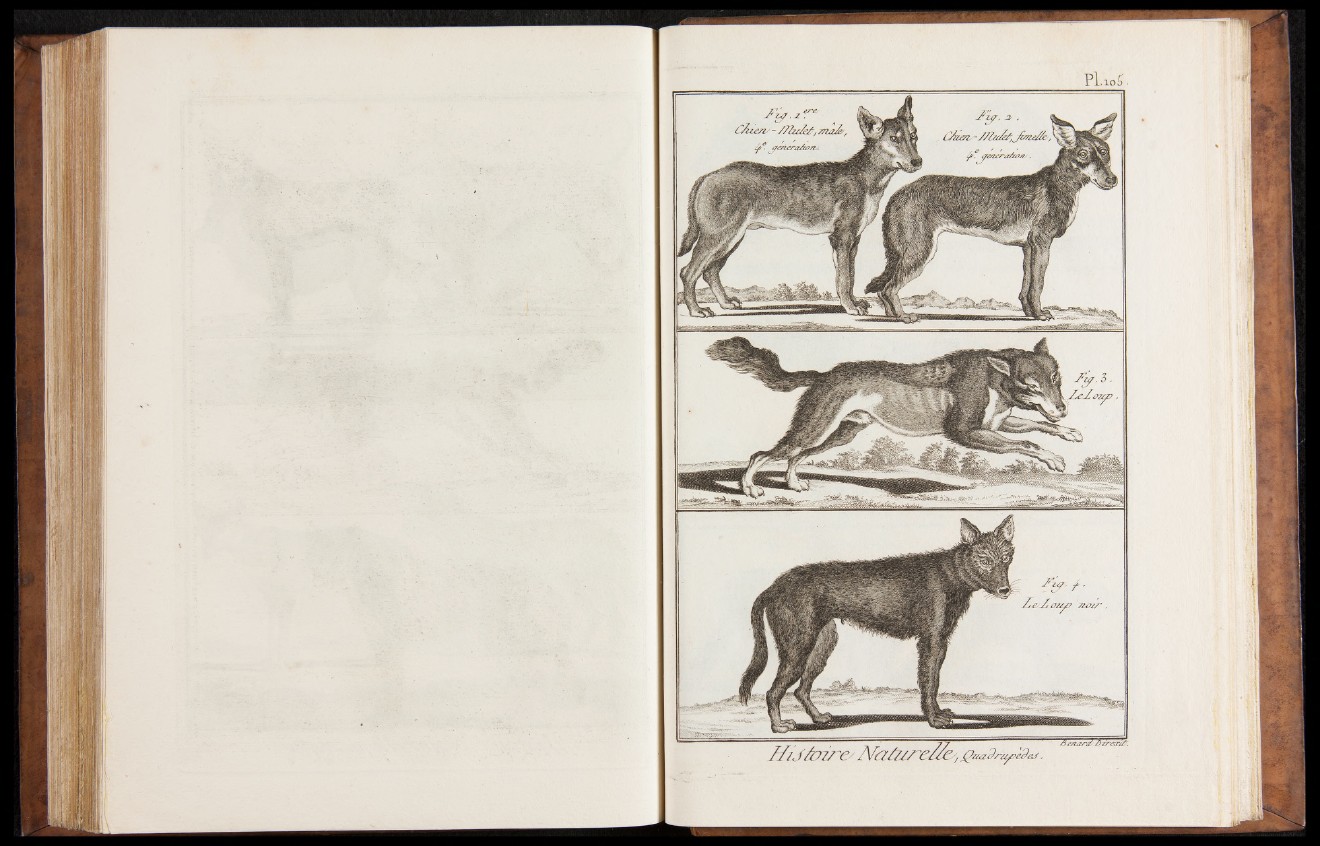 Pl.105.
Fig. 1.ere
Chien-Mulet, mâle,
4e. génération.
Fig. 2.
Chien-Mulet, femelle,
4e. génération.
Fig. 3.
Le Loup.
Fig. 4.
Le Loup noir.
Benard Direxit.
Histoire Naturelle, Quadrupèdes.